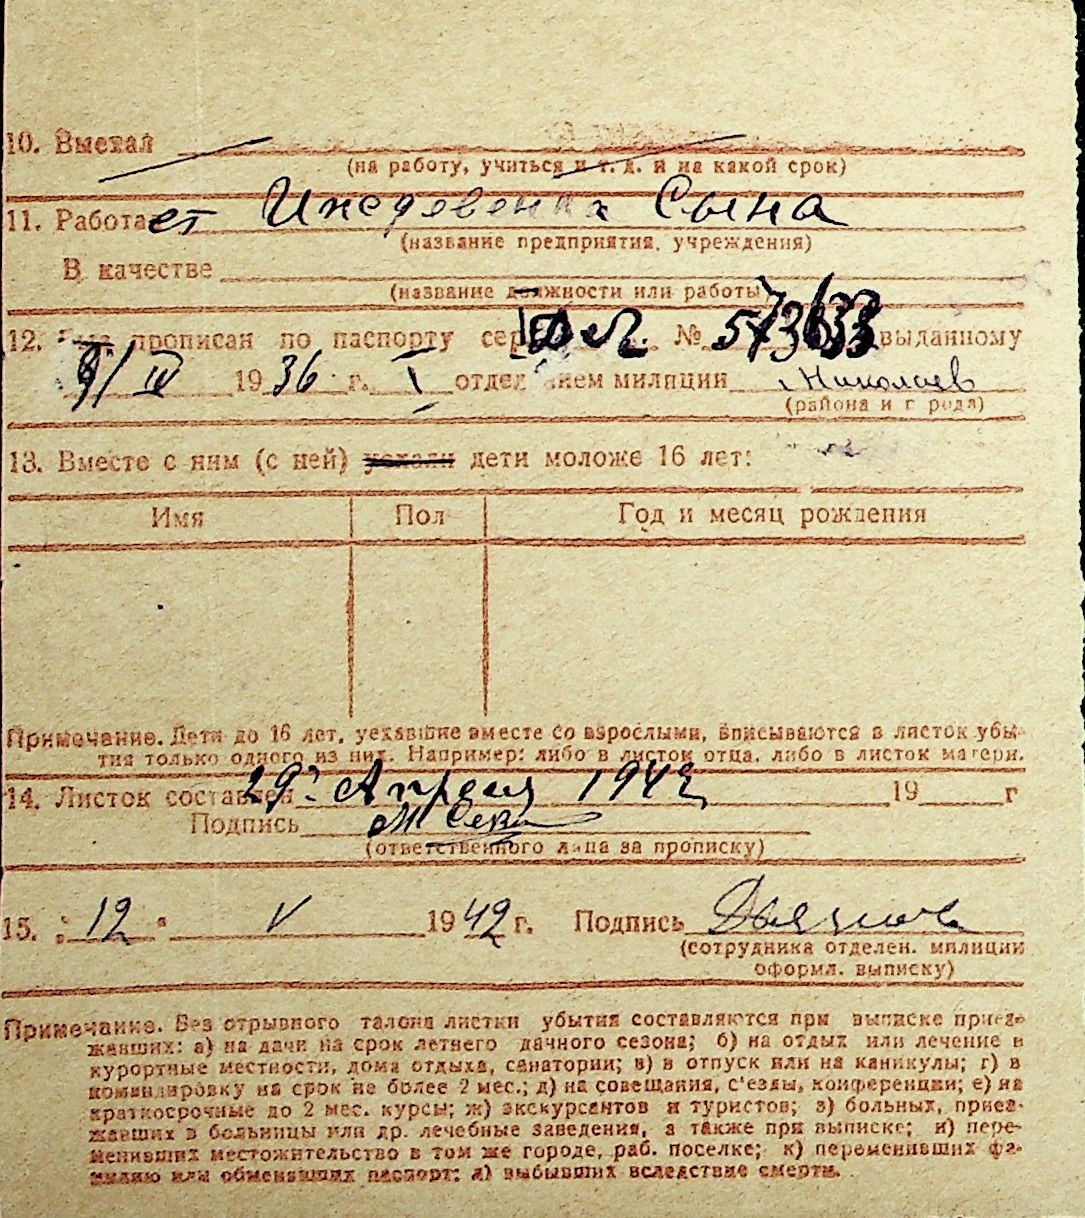 10. Выехал
(на работу, учиться и т. д. и на какой срок)
11. Работает Иждевенка Сына
(название предприятия, учреждения)
В качестве
(название должности или работы)
12. прописан по паспорту сер № 573633 выданному
9/IV 1936 г. I отделением милиции г. Николаев
(района и города)
13. Вместе с ним (с ней) уехали дети моложе 16 лет:
Имя Пол Год и месяц рождения
Примечание. Дети до 16 лет, уехавшие вместе со взрослыми, вписываются в листок убы-
тия только одного из них. Например: либо в листок отца, либо в листок матери.
14. Листок составлен 29го Апреля 1942 19 г
Подпись
(ответственного лица за прописку)
15. " 12 " V 1942 г. Подпись
(сотрудника отделен. милиции
оформл. выписку)
Примечание. Без отрывного талона листки убытия составляются при выписке приез-
жавших: а) на дачи на срок летнего дачного сезона; б) на отдых или лечение в
курортные местности, дома отдыха, санатории; в) в отпуск или на каникулы; г) в
командировку на срок не более 2 мес.; д) на совещания, с'езды, конференции; е) на
краткосрочные до 2 мес. курсы; ж) экскурсантов и туристов; з) больных, приез-
жавших в больницы или др. лечебные заведения, а также при выписке; и) пере-
менивших местожительство в том же городе, раб. поселке; к) переменивших фа-
милию или обменявших паспорт; л) выбывших вследствие смерти.